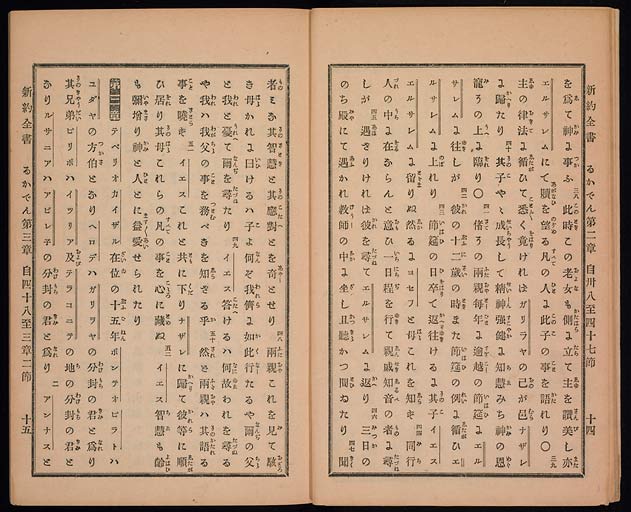 新約全書 るかでん第二章 自卅八至四十七節 十四
を爲て神に事ふ 三八 此時この老女も側に立て主を讃美し亦
エルサレムにて贖を望る凡の人に此子の事を語れり〇 三九
主の律法に循ひて悉く竟ければガリラヤの己が邑ナザレ
に歸たり 四十 其子やゝ成長して精神強健に知慧みち神の恩
寵その上に臨り〇 四一 偖その兩親年々に逾越の節筵にエル
サレムに往しが 四二 彼の十二歳の時また節筵の例に循ひエ
エルサレムに上れり 四三 節筵の日卒て返往けるに其子イエス
エルサレムに留りぬ然るにヨセフと母これを知ず 四四 同行
人の中に在ならんと意ひ一日程を行て親戚知音の者に尋
しが 四五 遇ざりければ彼を尋てエルサレムに返り 四六 三日の
のち殿にて遇かれ教師の中に坐し且聽かつ問ゐたり 四七 聞
新約全書 るかでん第三章 自四十八至三章二節 十五
者ミな其智慧と其應對とを奇とせり 四八 兩親これを見て駭
き母かれに曰けるハ子よ何ぞ我儕に如此行たるや爾の父
と我と憂て爾を尋たり 四九 イエス答けるハ何故われを尋る
や我ハ我父の事を務べきを知ざる乎 五十 然ど兩親ハ其語る
事を曉ず 五一 イエスこれと共に下りナザレに歸て彼等に順
ひ居り其母これらの凡の事を心に藏ぬ 五二 イエス智慧も齡
も彌增り神と人とに益愛せられたり
第三章 テベリオカイザル在位の十五年ポンテオピラトハ
ユダヤの方伯となりヘロデハガリラヤの分封の君と爲り
其兄弟ピリポハイツリア及テラコニテの地の分封の君と
なりルサニアハアビレ子の分封の君と爲り 二 アンナスと